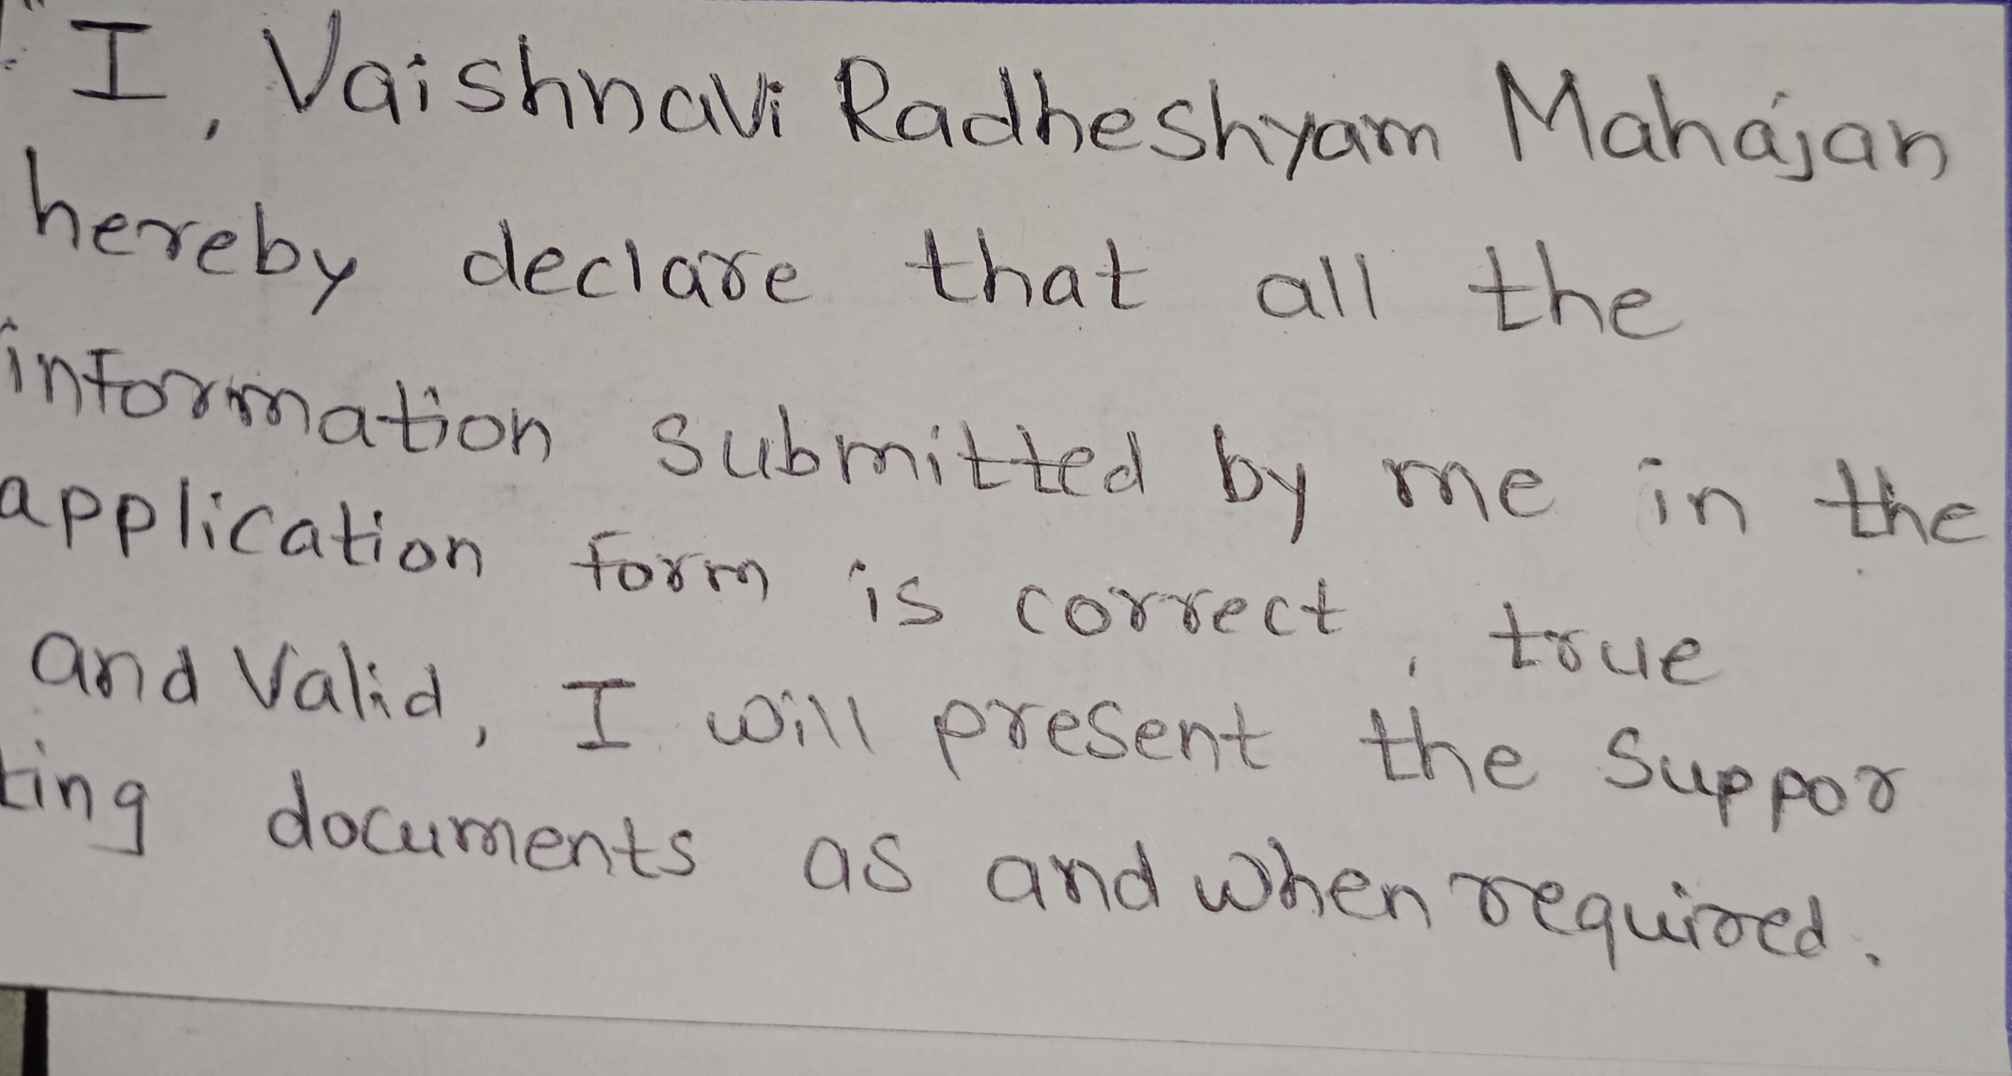 "I, Vaishnavi Radheshyam Mahajan
hereby declare that all the
information submitted by me in the
application form is correct, true
and valid, I will present the suppor
ting documents as and when required.